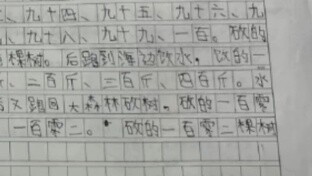 九十四、九十五、九十六、九
、九十八、九十九、一百。砍的
棵树。后跑到海边饮水,饮的一
、二百斤、三百斤、四百斤。水
又跑回大森林砍树。砍的一百零
一百零二。砍的一百零二棵树